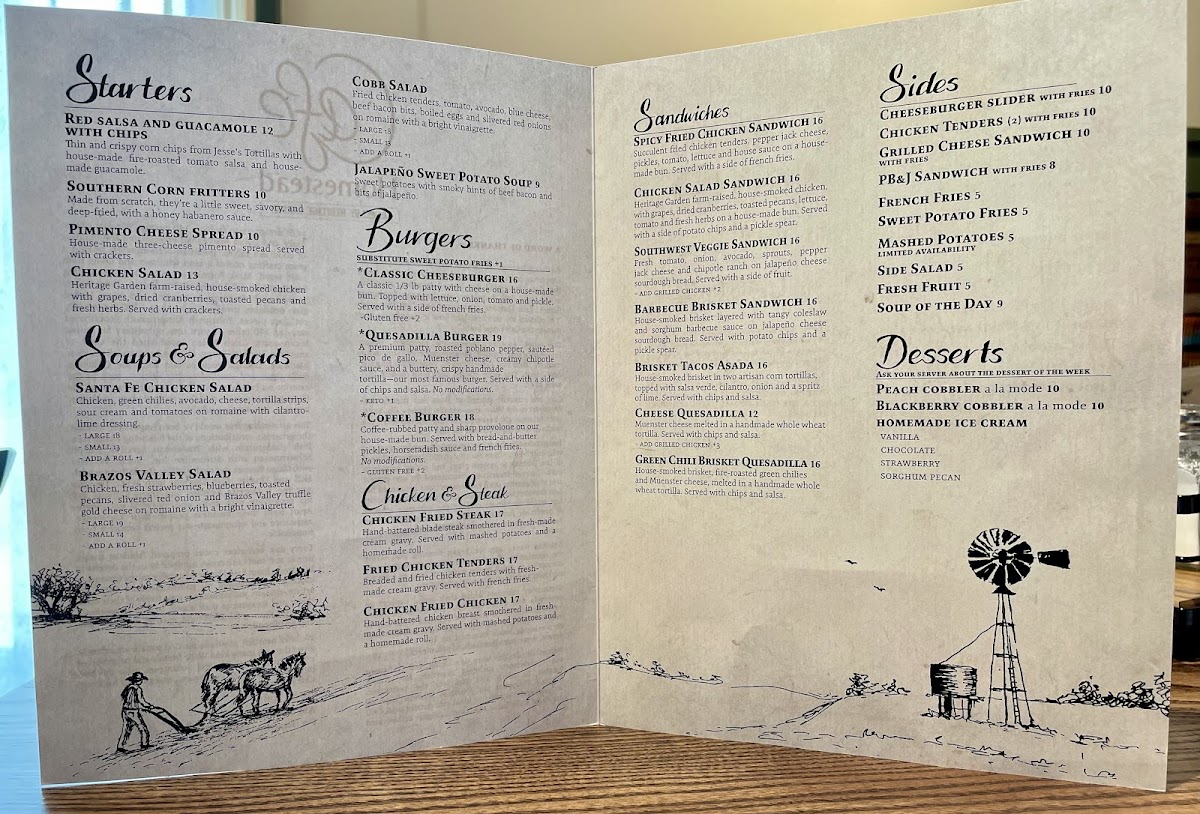 Starters
RED SALSA AND GUACAMOLE 12
WITH CHIPS
Thin and crispy corn chips from Jesse's Tortillas with
house-made fire-roasted tomato salsa and house-
made guacamole.
SOUTHERN CORN FRITTERS 10
Made from scratch, they're a little sweet, savory, and
deep-fried, with a honey habanero sauce.
PIMENTO CHEESE SPREAD 10
House-made three-cheese pimento spread served
with crackers.
CHICKEN SALAD 13
Heritage Garden farm-raised, house-smoked chicken
with grapes, dried cranberries, toasted pecans and
fresh herbs. Served with crackers.
Soups & Salads
SANTA FE CHICKEN SALAD
Chicken, green chilies, avocado, cheese, tortilla strips,
sour cream and tomatoes on romaine with cilantro-
lime dressing.
- LARGE 18
- SMALL 13
- ADD A ROLL +1
BRAZOS VALLEY SALAD
Chicken, fresh strawberries, blueberries, toasted
pecans, slivered red onion and Brazos Valley truffle
gold cheese on romaine with a bright vinaigrette.
- LARGE 19
- SMALL 14
- ADD A ROLL +1
COBB SALAD
Fried chicken tenders, tomato, avocado, blue cheese,
beef bacon bits, boiled eggs and slivered red onions
on romaine with a bright vinaigrette.
- LARGE 18
- SMALL 13
- ADD A ROLL +1
JALAPEÑO SWEET POTATO SOUP 9
Sweet potatoes with smoky hints of beef bacon and
bits of jalapeño.
Burgers
SUBSTITUTE SWEET POTATO FRIES +1
*CLASSIC CHEESEBURGER 16
A classic 1/3 lb patty with cheese on a house-made
bun. Topped with lettuce, onion, tomato and pickle.
Served with a side of french fries.
-Gluten free +2
*QUESADILLA BURGER 19
A premium patty, roasted poblano pepper, sautéed
pico de gallo, Muenster cheese, creamy chipotle
sauce, and a buttery, crispy handmade
tortilla—our most famous burger. Served with a side
of chips and salsa. No modifications.
- KETO +1
*COFFEE BURGER 18
Coffee-rubbed patty and sharp provolone on our
house-made bun. Served with bread-and-butter
pickles, horseradish sauce and french fries.
No modifications.
- GLUTEN FREE +2
Chicken & Steak
CHICKEN FRIED STEAK 17
Hand-battered blade steak smothered in fresh-made
cream gravy. Served with mashed potatoes and a
homemade roll.
FRIED CHICKEN TENDERS 17
Breaded and fried chicken tenders with fresh-
made cream gravy. Served with french fries.
CHICKEN FRIED CHICKEN 17
Hand-battered, chicken breast smothered in fresh-
made cream gravy. Served with mashed potatoes and
a homemade roll.
Sandwiches
SPICY FRIED CHICKEN SANDWICH 16
Succulent fried chicken tenders, pepper jack cheese,
pickles, tomato, lettuce and house sauce on a house-
made bun. Served with a side of french fries.
CHICKEN SALAD SANDWICH 16
Heritage Garden farm-raised, house-smoked chicken,
with grapes, dried cranberries, toasted pecans, lettuce,
tomato and fresh herbs on a house-made bun. Served
with a side of potato chips and a pickle spear.
SOUTHWEST VEGGIE SANDWICH 16
Fresh tomato, onion, avocado, sprouts, pepper
jack cheese and chipotle ranch on jalapeño cheese
sourdough bread. Served with a side of fruit.
- ADD GRILLED CHICKEN +2
BARBECUE BRISKET SANDWICH 16
House-smoked brisket layered with tangy coleslaw
and sorghum barbecue sauce on jalapeño cheese
sourdough bread. Served with potato chips and a
pickle spear.
BRISKET TACOS ASADA 16
House-smoked brisket in two artisan corn tortillas,
topped with salsa verde, cilantro, onion and a spritz
of lime. Served with chips and salsa.
CHEESE QUESADILLA 12
Muenster cheese melted in a handmade whole wheat
tortilla. Served with chips and salsa.
- ADD GRILLED CHICKEN +3
GREEN CHILI BRISKET QUESADILLA 16
House-smoked brisket, fire-roasted green chilies
and Muenster cheese, melted in a handmade whole
wheat tortilla. Served with chips and salsa.
Sides
CHEESEBURGER SLIDER WITH FRIES 10
CHICKEN TENDERS (2) WITH FRIES 10
GRILLED CHEESE SANDWICH 10
WITH FRIES
PB&J SANDWICH WITH FRIES 8
FRENCH FRIES 5
SWEET POTATO FRIES 5
MASHED POTATOES 5
LIMITED AVAILABILITY
SIDE SALAD 5
FRESH FRUIT 5
SOUP OF THE DAY 9
Desserts
ASK YOUR SERVER ABOUT THE DESSERT OF THE WEEK
PEACH COBBLER a la mode 10
BLACKBERRY COBBLER a la mode 10
HOMEMADE ICE CREAM
VANILLA
CHOCOLATE
STRAWBERRY
SORGHUM PECAN